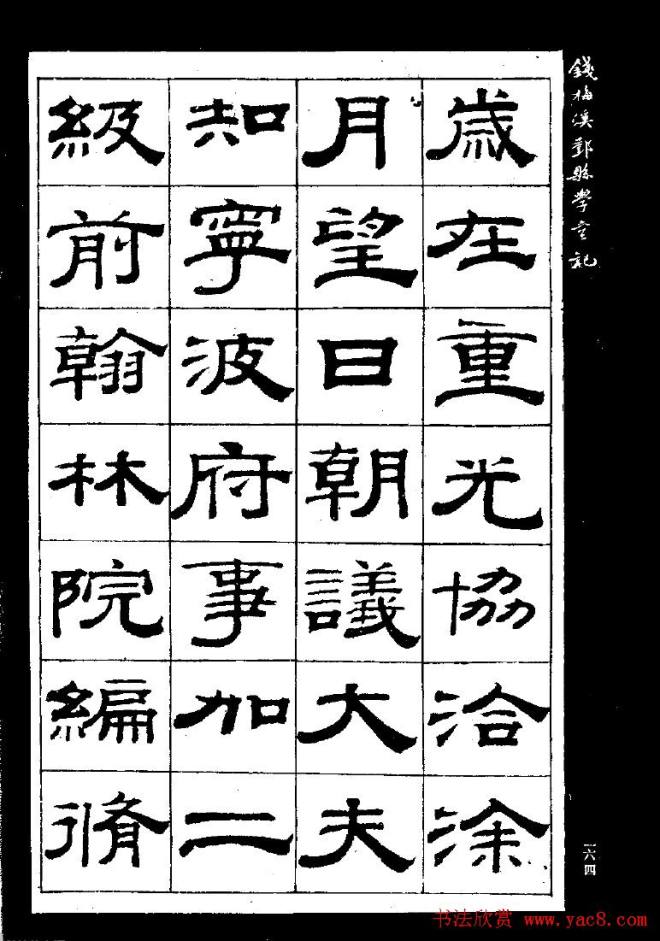 錢梅溪鄞縣學重記
歲在重光協洽涂
月望日朝議大夫
知寧波府事加二
級前翰林院編脩
一六四
书法欣赏 www.yac8.com